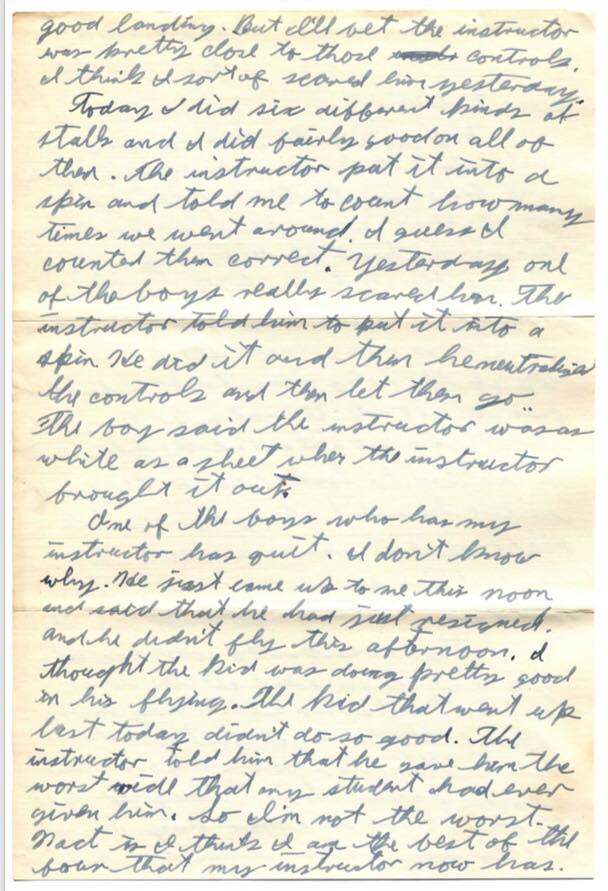 good landing. But I'll bet the instructor
was pretty close to those controls.
I think I sort of scared him yesterday.
Today I did six different kinds of
stalls and I did fairly good on all of
them. The instructor put it into a
spin and told me to count how many
times we went around. I guess I
counted them correct. Yesterday one
of the boys really scared him. The
instructor told him to put it into a
spin. He did it and then he neutralized
the controls and then let them go.
The boy said the instructor was as
white as a sheet when the instructor
brought it out.
One of the boys who has my
instructor has quit. I don't know
why. He just came up to me this noon
and said that he had just resigned.
and he didn't fly this afternoon. I
thought the kid was doing pretty good
in his flying. The kid that went up
last today didn't do so good. The
instructor told him that he gave him the
worst ride that any student had ever
given him. So I'm not the worst.
Fact is I think I am the best of the
four that my instructor now has.